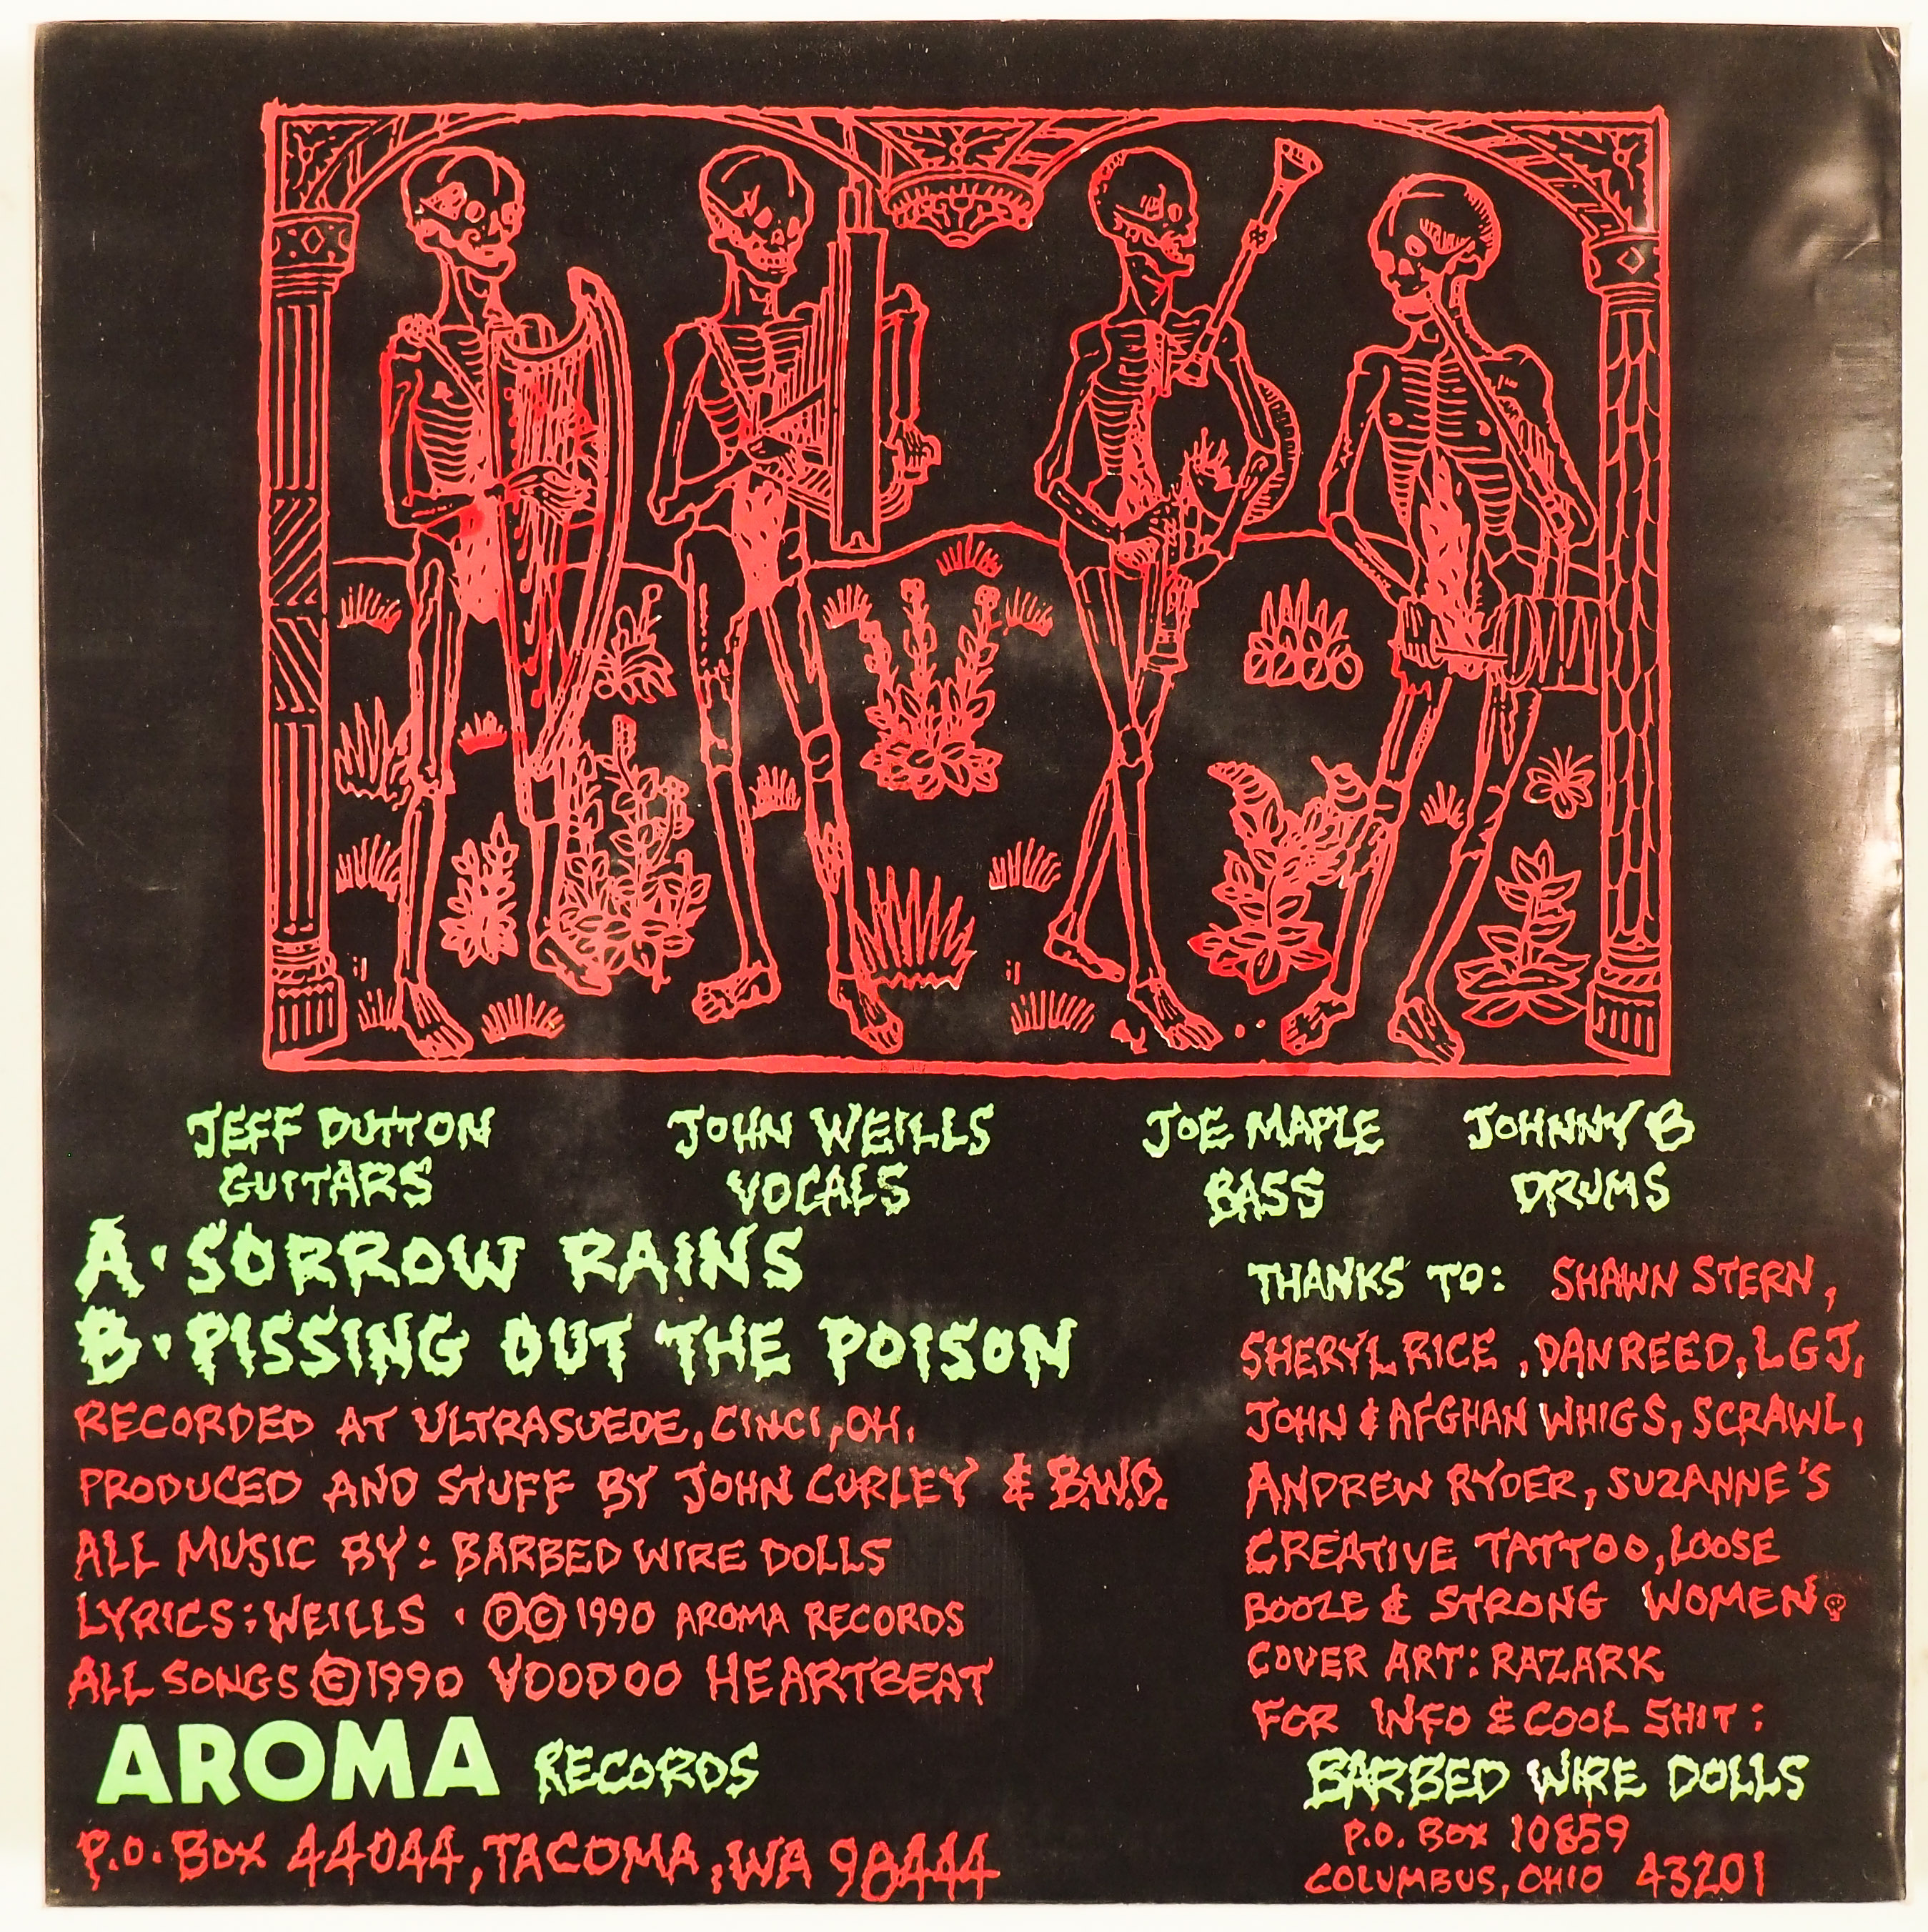 JEFF DUTTON
GUITARS
JOHN WEILLS
VOCALS
JOE MAPLE
BASS
JOHNNY B
DRUMS
A · SORROW RAINS
B · PISSING OUT THE POISON
RECORDED AT ULTRASUEDE, CINCI, OH.
PRODUCED AND STUFF BY JOHN CURLEY & B.W.D.
ALL MUSIC BY: BARBED WIRE DOLLS
LYRICS: WEILLS · ℗©1990 AROMA RECORDS
ALL SONGS ©1990 VOODOO HEARTBEAT
AROMA RECORDS
P.O. BOX 44044, TACOMA, WA 98444
THANKS TO: SHAWN STERN,
SHERYL RICE, DAN REED, LGJ,
JOHN & AFGHAN WHIGS, SCRAWL,
ANDREW RYDER, SUZANNE'S
CREATIVE TATTOO, LOOSE
BOOZE & STRONG WOMEN
COVER ART: RAZARK
FOR INFO & COOL SHIT:
BARBED WIRE DOLLS
P.O. BOX 10859
COLUMBUS, OHIO 43201